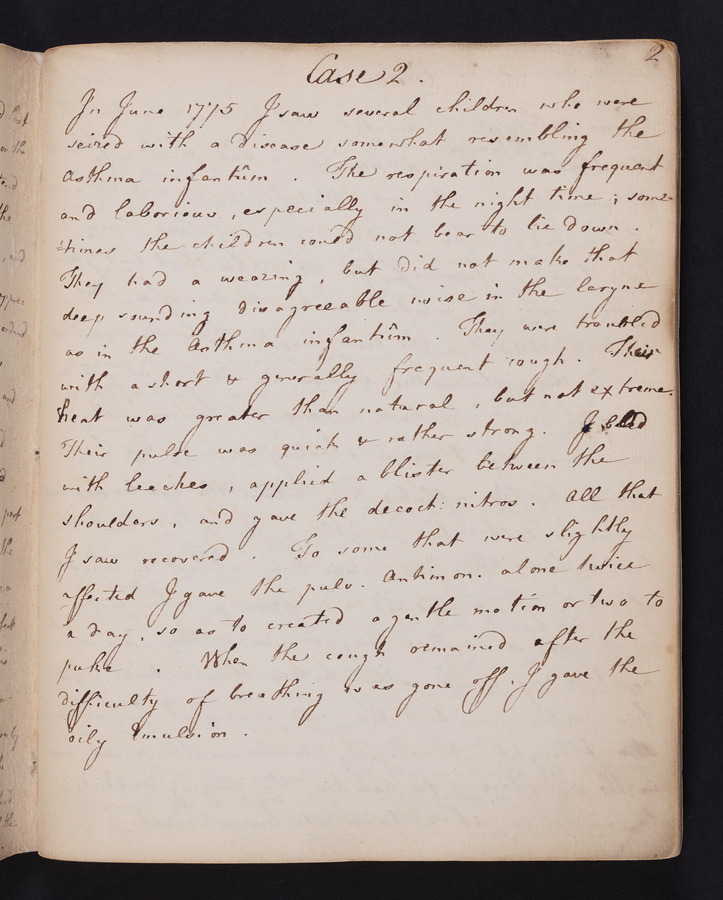 2
Case 2.
In June 1775 I saw several children who were
seized with a Disease somewhat resembling the
Asthma infantûm. The respiration was frequent
and laborious, especially in the night time; some-
:times the children could not bear to lie down.
They had a weazing, but did not make that
deep sounding disagreeable noise in the larynx
as in the Asthma infantûm. They were troubled
with a short & generally frequent cough. Their
heat was greater than natural, but not extreme.
Their pulse was quick & rather strong. I bled
with leeches, applied a blister between the
shoulders, and gave the decoct: nitros. All that
I saw recovered. To some that were slightly
affected I gave the pulv. Antimon. alone twice
a day, so as to created a gentle motion or two to
puke. When the cough remained after the
difficulty of breathing was gone off. I gave the
oily Emulsion.